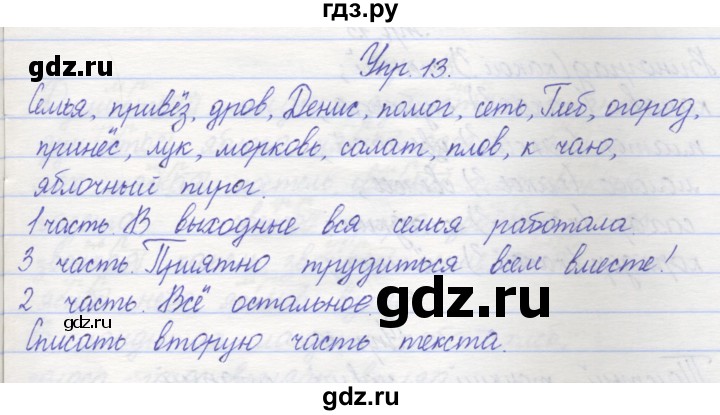 гдз.ру
gdz.ru
Упр. 13.
Семья, привёз, дров, Денис, помог, сеть, Глеб, огород,
принёс, лук, морковь, салат, плов, к чаю,
яблочный пирог.
1 часть. В выходные вся семья работала
3 часть. Приятно трудиться всем вместе!
2 часть. Всё остальное.
gdz.ru
gdz.ru
Списать вторую часть текста.
gdz.ru